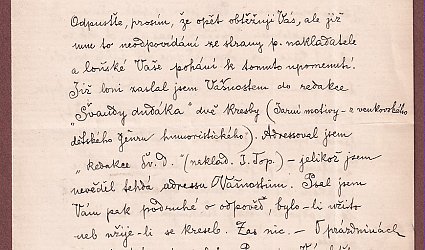 Odpusťte, prosím, že opět obtěžuji Vás, ale již
nutí mne to neodpovídání ze strany p. nakladatele
a loňské Vaše pohání k tomuto upomenutí.
Již loni zaslal jsem Vašnostem do redakce
„Švandy dudáka" dvě kresby (Jarní motivy – z venkovského
dětského žánru humoristického). Adressoval jsem
„redakce Šv. D." (naklad. J. Top.) – jelikož jsem
nevěděl tehdá adressu Vašnostinu. Psal jsem
Vám pak podruhé o odpověď, bylo-li užito
neb užije-li se kreseb. Zas nic. – O prázdninách